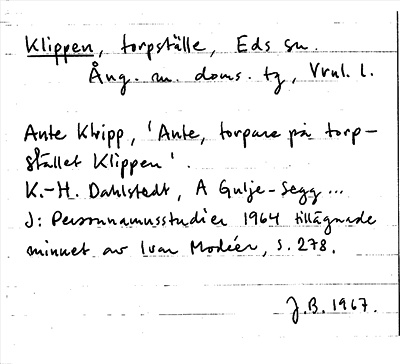 Klippen, torpställe, Eds sn.
Ång. m. doms. tg, Vrnl. l.
Ante Klipp, 'Ante, torpare på torp-
stället Klippen'.
K.-H. Dahlstedt, A Gulje-Segg...
J: Personnamnsstudier 1964 tillägnade
minnet av Ivar Modéer, s. 278.
J.B. 1967.